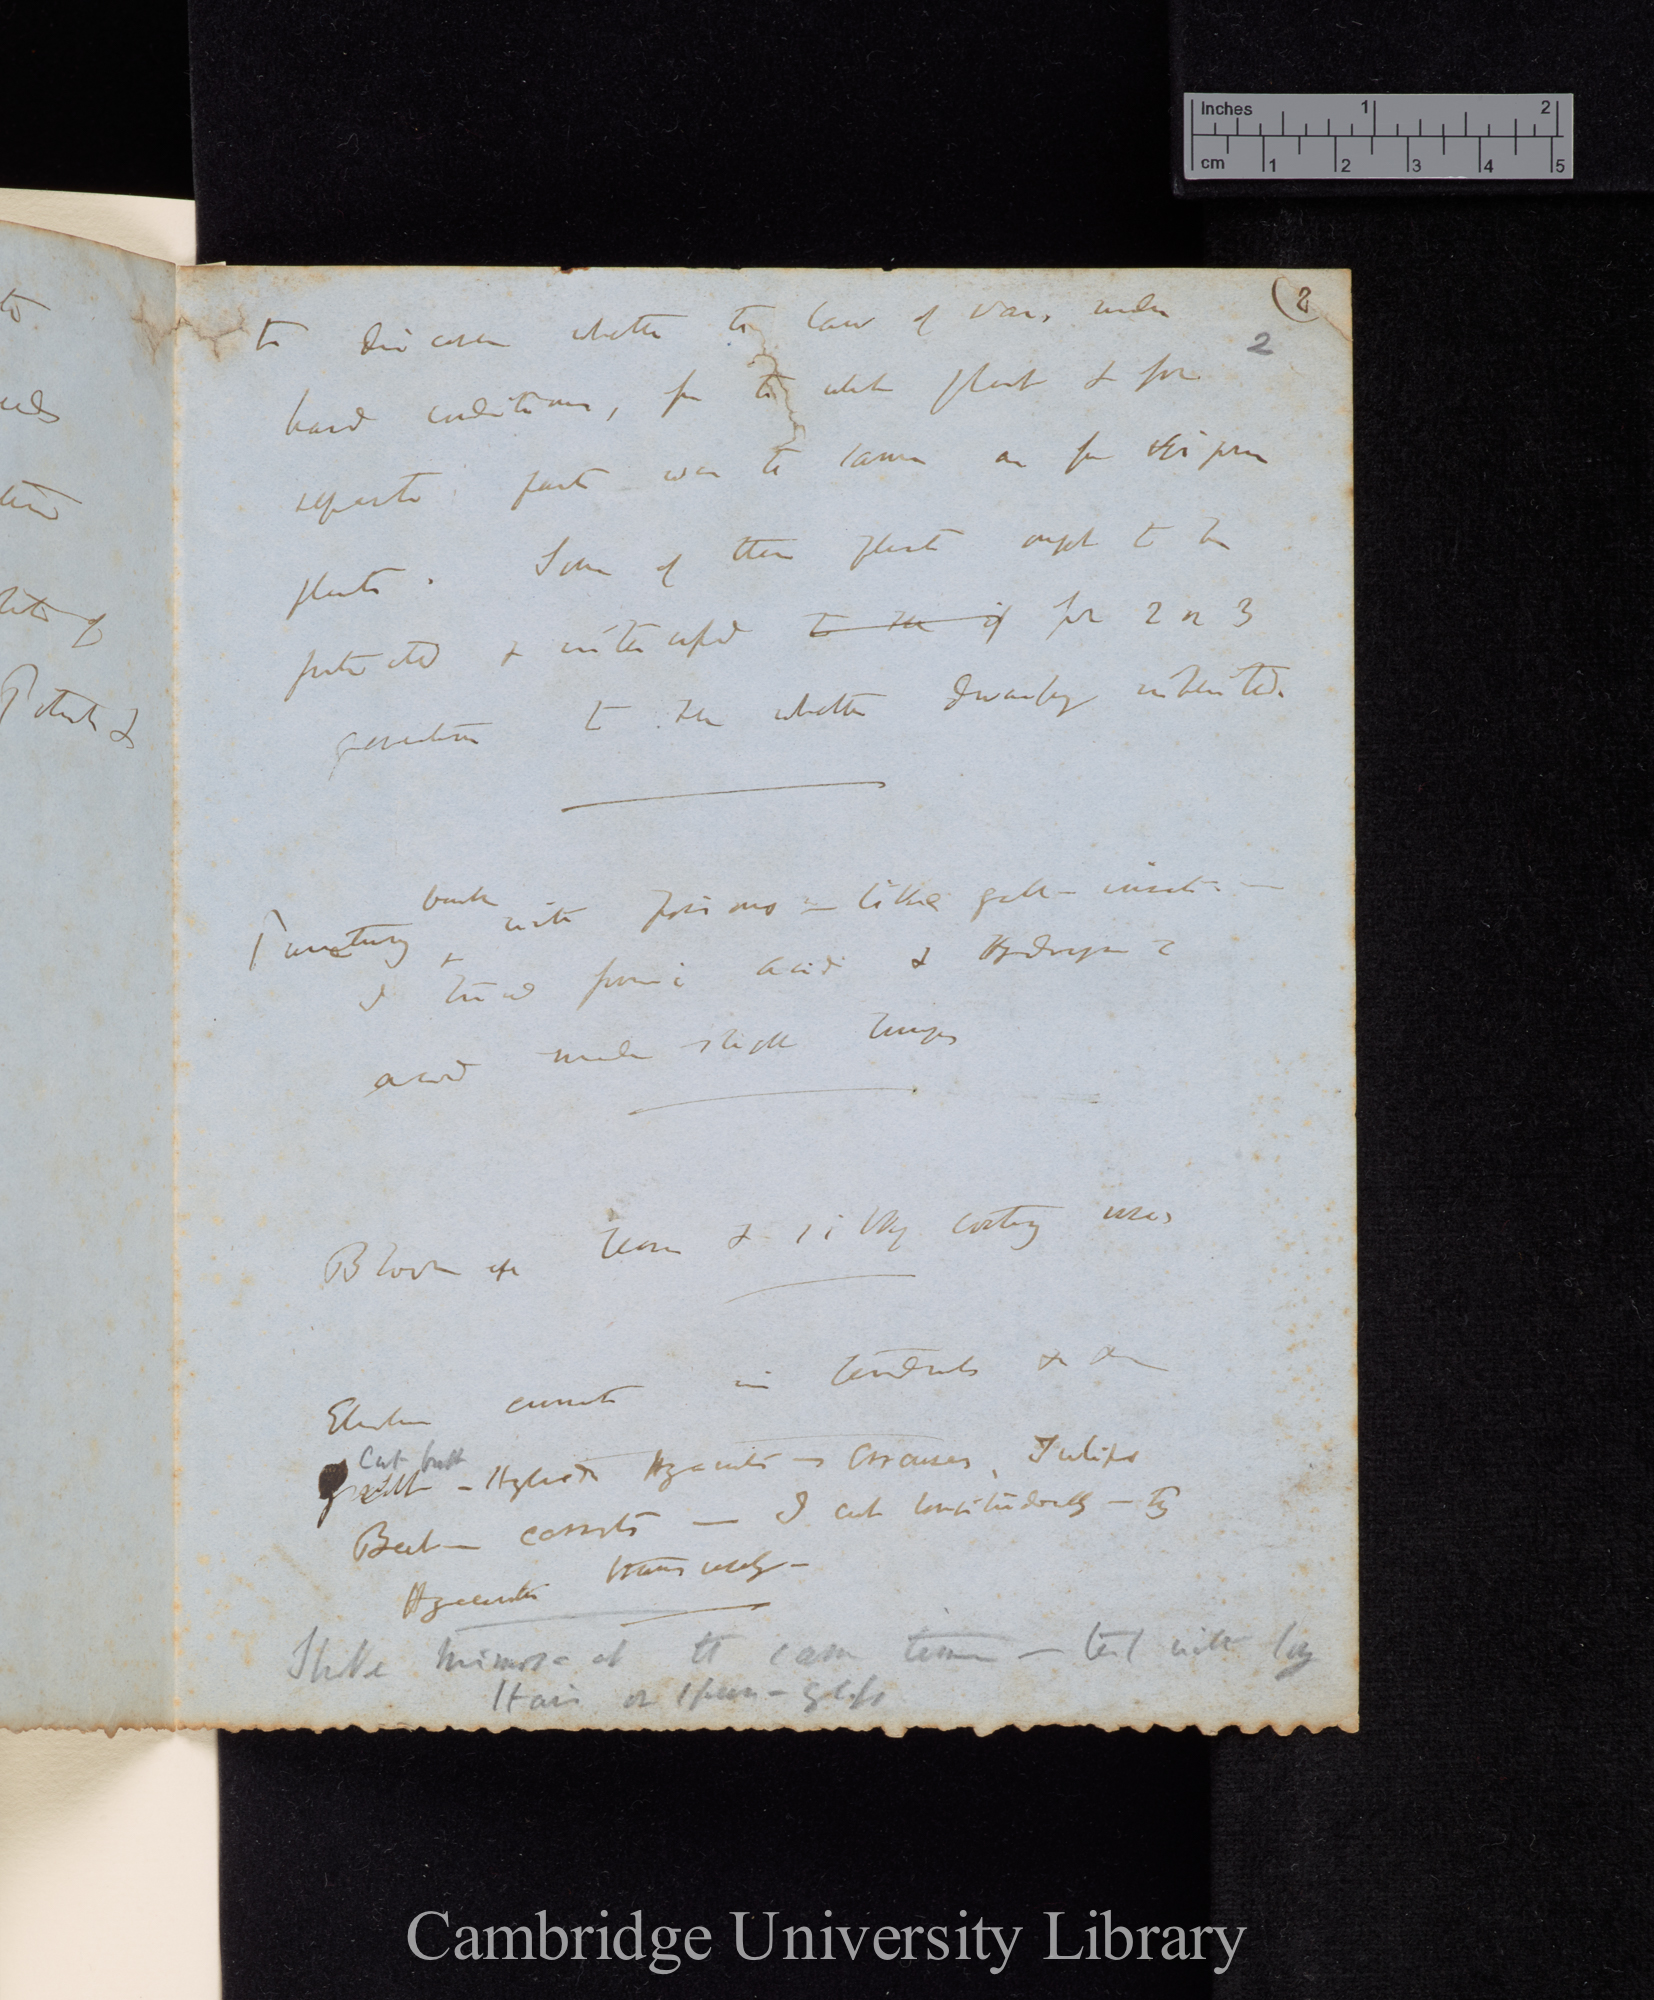 Inches 1 2
cm 1 2 3 4 5
(2
2
to discover whether the law of var. under
hard conditions, for the whole plant & for
separate parts was the same as for
plants. Some of these plants ought to be
protected & intercrossed to see if for 2 or 3
generations to see whether dwarfing inherited.
buds
Puncturing with poisons — like gall-insects —
I tried formic acid & Hydrocyanic
acid made slight bumps
Bloom on leaves & silky coating uses
Electric currents in tendrils
Cut bulb
— Hybrid Hyacinths — Crocuses, Tulips
Beet — carrots — I cut longitudinally — try
Hyacinths transversely —
Strike Mimosa at the same time — test with
Hair or
to
Potash &
Cambridge University Library